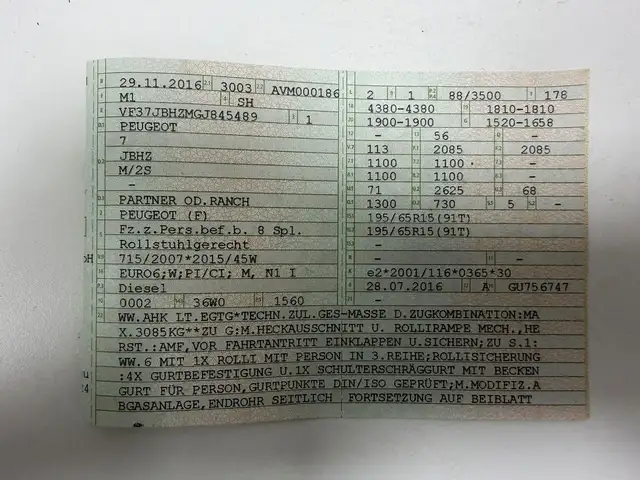 29.11.2016 3003 AVM000186
M1 SH
VF37JBHZMGJ845489 1
PEUGEOT
7
JBHZ
M/2S
-
PARTNER OD.RANCH
PEUGEOT (F)
Fz.z.Pers.bef.b. 8 Spl.
Rollstuhlgerecht
715/2007*2015/45W
EURO6;W;PI/CI; M, N1 I
Diesel
0002 36W0 1560
2 1 88/3500 178
4380-4380 1810-1810
1900-1900 1520-1658
- 56 -
113 2085 2085
1100 1100 -
1100 1100 -
71 2625 68
1300 730 5 -
195/65R15(91T)
195/65R15(91T)
-
- -
e2*2001/116*0365*30
28.07.2016 A GU756747
WW.AHK LT.EGTG*TECHN.ZUL.GES-MASSE D.ZUGKOMBINATION:MA
X.3085KG**ZU G:M.HECKAUSSCHNITT U. ROLLIRAMPE MECH.,HE
RST.:AMF,VOR FAHRTANTRITT EINKLAPPEN U.SICHERN;ZU S.1:
WW.6 MIT 1X ROLLI MIT PERSON IN 3.REIHE;ROLLISICHERUNG
:4X GURTBEFESTIGUNG U.1X SCHULTERSCHRÄGGURT MIT BECKEN
GURT FÜR PERSON,GURTPUNKTE DIN/ISO GEPRÜFT;M.MODIFIZ.A
BGASANLAGE,ENDROHR SEITLICH FORTSETZUNG AUF BEIBLATT